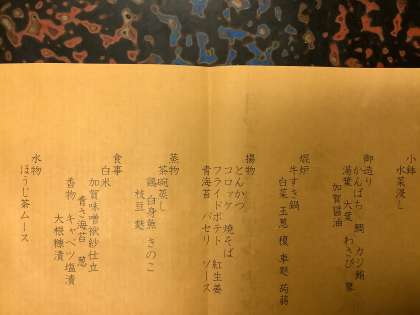 小鉢
水菜浸し
御造り
かんぱち 鯛 カジキ鮪
湯葉 大葉 わさび 蓼
加賀醤油
焜炉
牛すき鍋
白菜 玉葱 榎 車麩 蒟蒻
揚物
とんかつ
コロッケ 焼そば
フライドポテト 紅生姜
青海苔 パセリ ソース
蒸物
茶碗蒸し
鶏 白身魚 きのこ
枝豆 麩
食事
白米
加賀味噌袱紗仕立
青さ海苔 葱
香物 キャベツ塩漬
大根糠漬
水物
ほうじ茶ムース